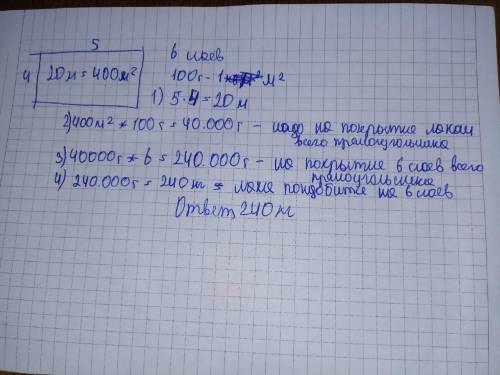 5
4 20м = 400м²
6 слоев
100г - 1 м²
1) 5·4 = 20 м
2) 400м² * 100г = 40.000г - надо на покрытие лаком
всего прямоугольника
3) 40000г * 6 = 240.000г - на покрытие 6 слоев всего
прямоугольника
4) 240.000г = 240 кг = лака пондобитье на 6 слоев
Ответ, 240 кг